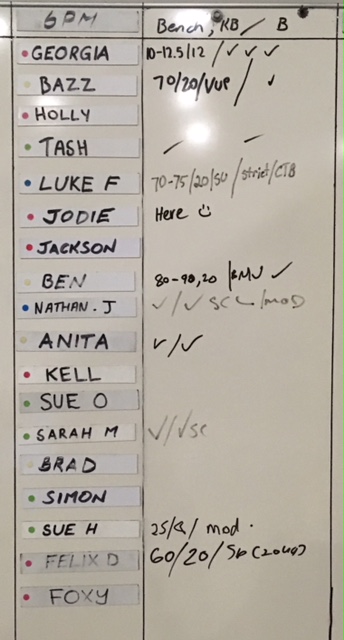 6PM Bench, KB / B
GEORGIA 10-12.5/12 / ✓ ✓ ✓
BAZZ 70/20/VUP / ✓
HOLLY
TASH / –
LUKE F 70-75/20/SU / strict/CTB
JODIE Here ☺
JACKSON
BEN 80-90,20 /BMU ✓
NATHAN.J ✓/✓ SC /mod
ANITA ✓/✓
KELL
SUE O
SARAH M ✓/✓SC
BRAD
SIMON
SUE H 25/8/ mod.
FELIX D 60/20/
FOXY